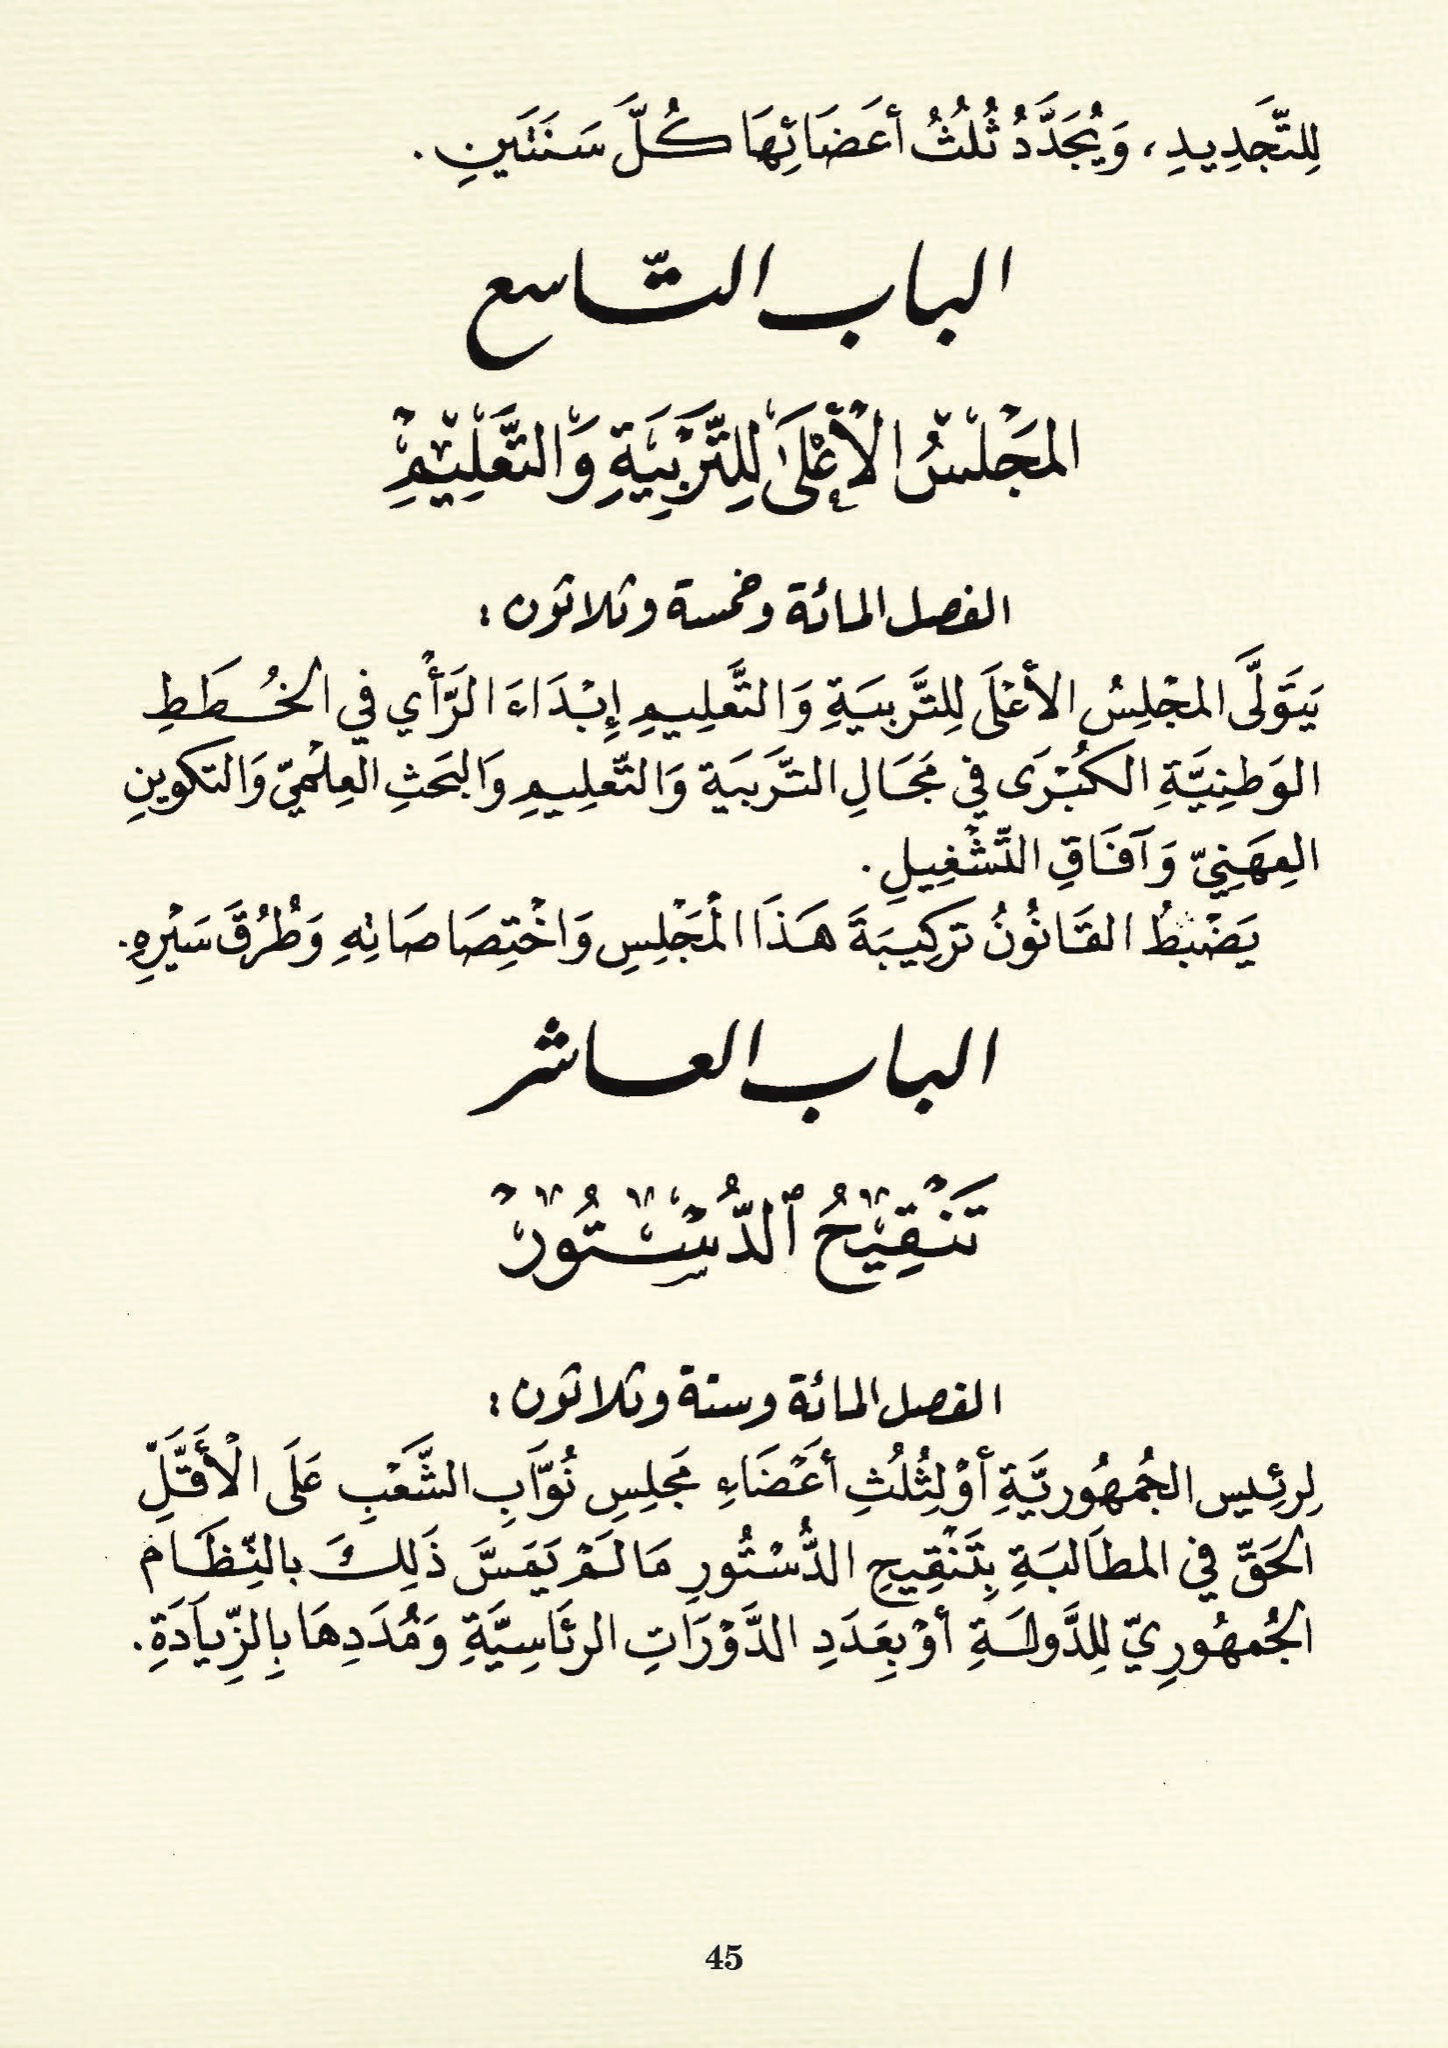 لِلتَّجَدِيدِ، وَيُجَدَّدُ ثُلُثُ أعَضَائِهَا كُلَّ سَنَتَينِ.
الباب التّاسع
المَجَلْسُ الْأَعْلَى لِلتَّرْبِيَةِ وَالتَّعْلِيْمِ
الفصل المائة وخمسة وثلاثون:
يَتَوَلَّى المجْلِسُ الأعْلَى لِلتَّربيَةِ وَالتَّعلِيمِ إِبْدَاءَ الرَّأْي في الخُطَطِ
الوَطنِيَّةِ الكُبْرَى في مَجَالِ التَّربَيَة وَالتَّعلِيمِ وَالبَحثِ العِلْميّ وَالتكوينِ
المِهَنِيّ وَآفَاقِ التَّشْغِيلِ.
يَضْبُطُ القَانُونُ تَركِيبَةَ هَذَا المَجْلِسِ وَاخْتِصَاصَاتِهِ وَطُرُقَ سَيْرِهِ.
الباب العاشر
تَنْقِيْحُ ٱلدُّسْتُوْرْ
الفصل المائة وستة وثلاثون:
لِرئِيس الجُمهُوريَّةِ أوْ لِثُلُثِ أعَضَاءِ مَجلِسِ نُوَّابِ الشَّعْبِ عَلَى الْأَقَلِّ
الحَقّ في المطَالبَةِ بِتَنْقِيحِ الدُّسْتُورِ مَا لَمْ يَمَسَّ ذَلِكَ بالنِّظَام
الجُمهُورِيّ لِلدَّولَةِ أوْ بِعَدَدِ الدَّوْرَاتِ الرئَاسِيَّةِ وَمُدَدِهَا بِالزِّيَادَةِ.
45